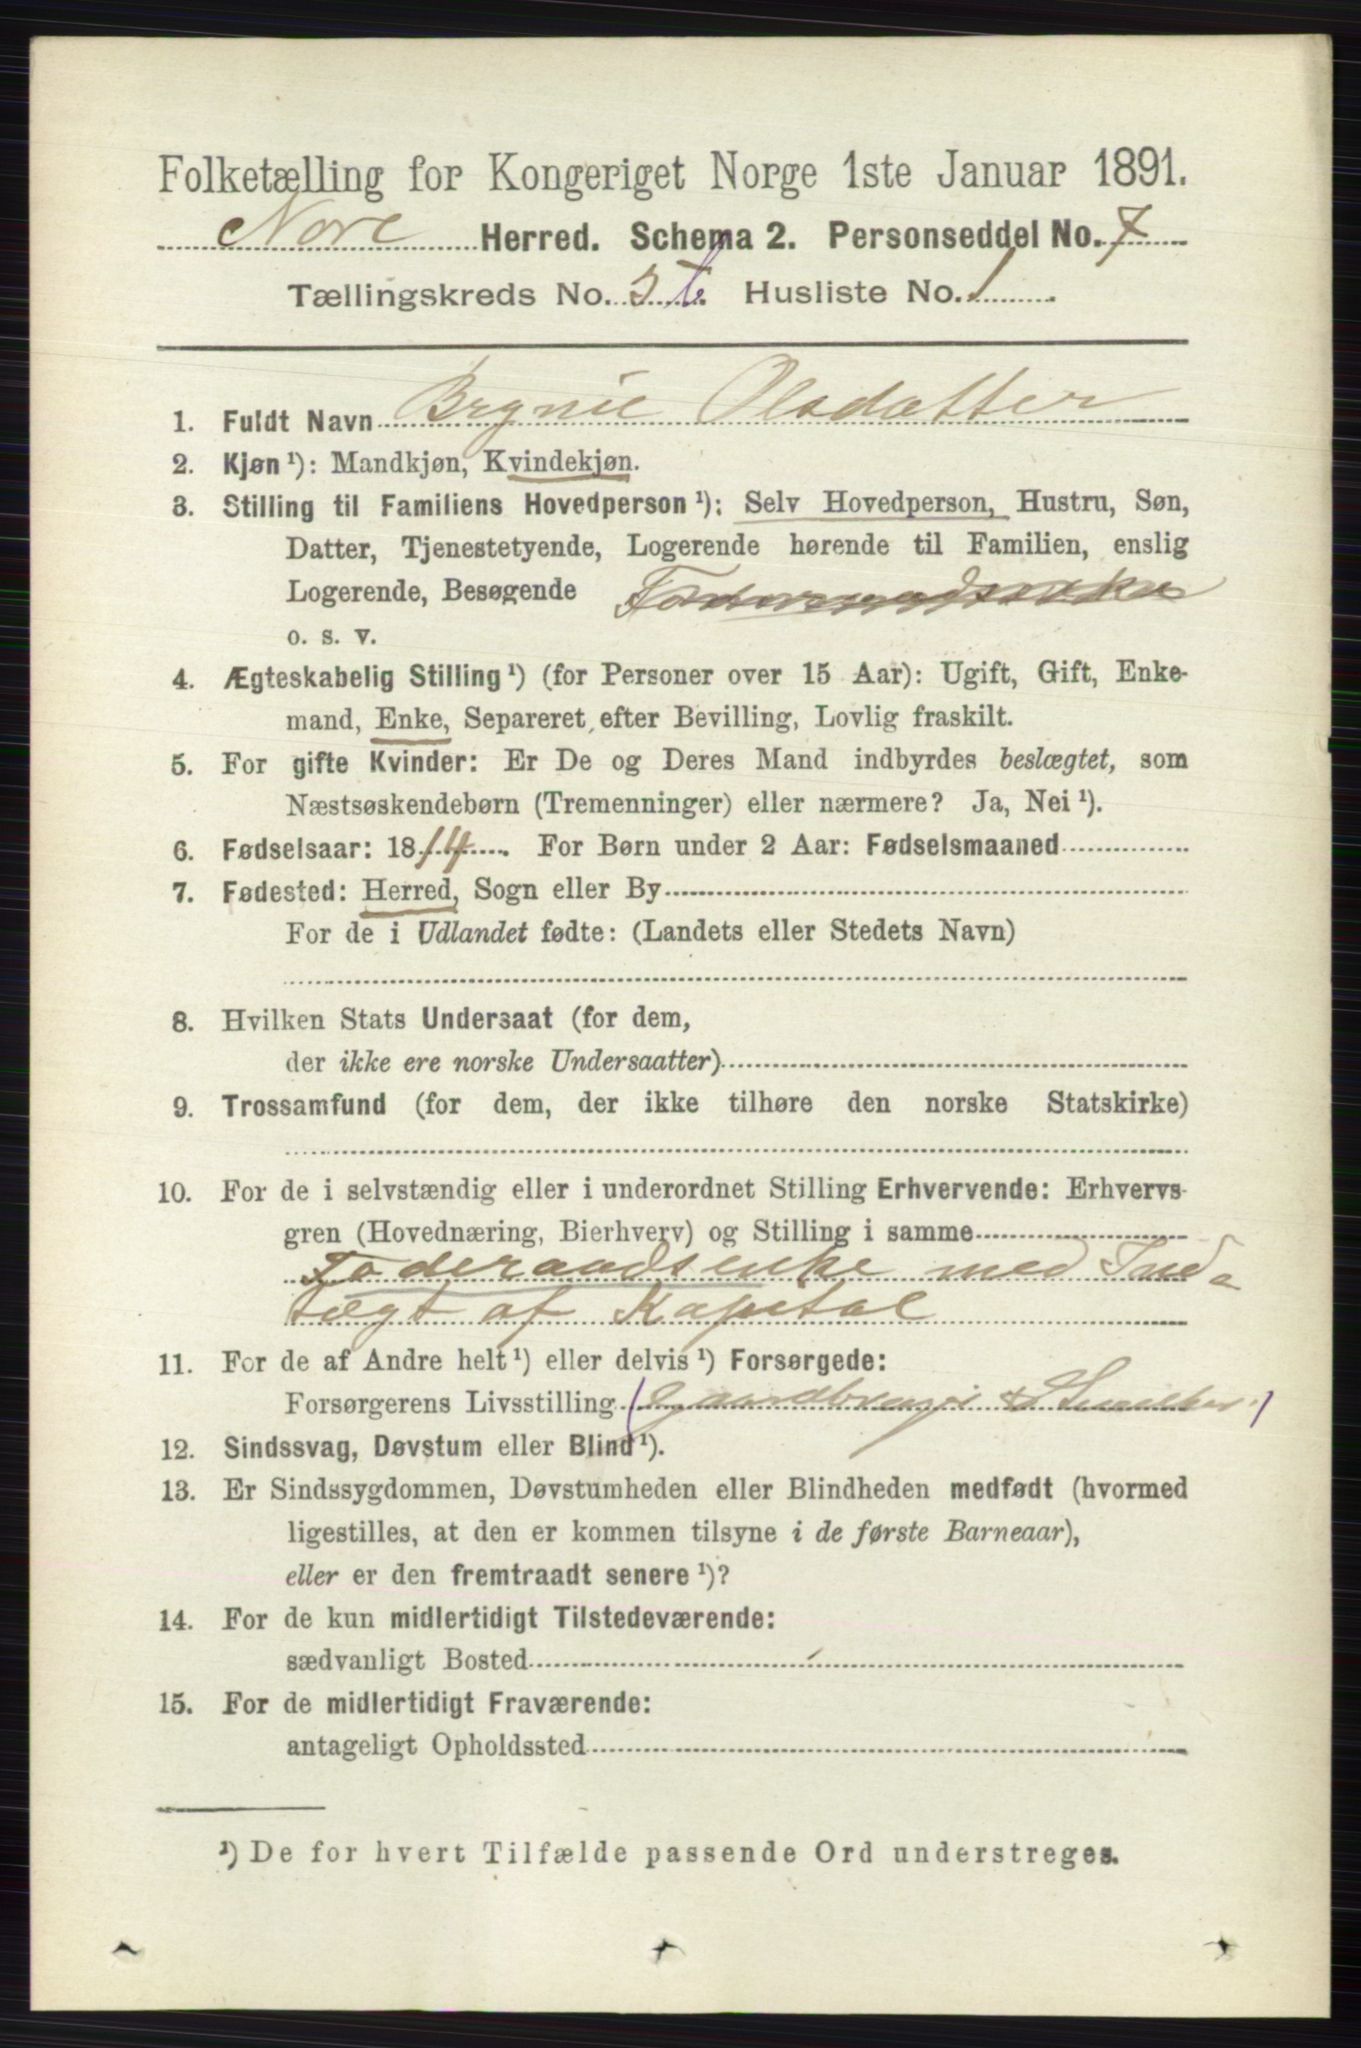 Folketælling for Kongeriget Norge 1ste Januar 1891.
Nore Herred. Schema 2. Personseddel No. 7
Tællingskreds No. 3 b. Husliste No. 1
1. Fuldt Navn Olsdatter
2. Kjøn¹): Mandkjøn, Kvindekjøn.
3. Stilling til Familiens Hovedperson¹): Selv Hovedperson, Hustru, Søn,
Datter, Tjenestetyende, Logerende hørende til Familien, enslig
Logerende, Besøgende
o. s. v.
4. Ægteskabelig Stilling¹) (for Personer over 15 Aar): Ugift, Gift, Enke-
mand, Enke, Separeret efter Bevilling, Lovlig fraskilt.
5. For gifte Kvinder: Er De og Deres Mand indbyrdes beslægtet, som
Næstsøskendebørn (Tremenninger) eller nærmere? Ja, Nei¹).
6. Fødselsaar: 1814. For Børn under 2 Aar: Fødselsmaaned
7. Fødested: Herred, Sogn eller By
For de i Udlandet fødte: (Landets eller Stedets Navn)
8. Hvilken Stats Undersaat (for dem,
der ikke ere norske Undersaatter)
9. Trossamfund (for dem, der ikke tilhøre den norske Statskirke)
10. For de i selvstændig eller i underordnet Stilling Erhvervende: Erhvervs-
gren (Hovednæring, Bierhverv) og Stilling i samme
Føderaadsenke med Ind-
tægt af Kapital
11. For de af Andre helt¹) eller delvis¹) Forsørgede:
Forsørgerens Livsstilling (Gaardbruger & Snedker)
12. Sindssvag, Døvstum eller Blind¹).
13. Er Sindssygdommen, Døvstumheden eller Blindheden medfødt (hvormed
ligestilles, at den er kommen tilsyne i de første Barneaar),
eller er den fremtraadt senere¹)?
14. For de kun midlertidigt Tilstedeværende:
sædvanligt Bosted
15. For de midlertidigt Fraværende:
antageligt Opholdssted
¹) De for hvert Tilfælde passende Ord understreges.